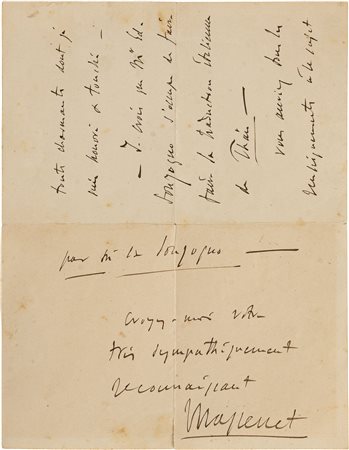 toute charmante dont je
suis honoré & touché —
— Je crois que Mr Ed.
Sonzogno s'occupe de faire
faire la traduction italienne
de Thaïs —
vous auriez tous les
renseignements à ce sujet
par Mr Ed Sonzogno —
croyez-moi votre
très sympathiquement
reconnaissant
Massenet